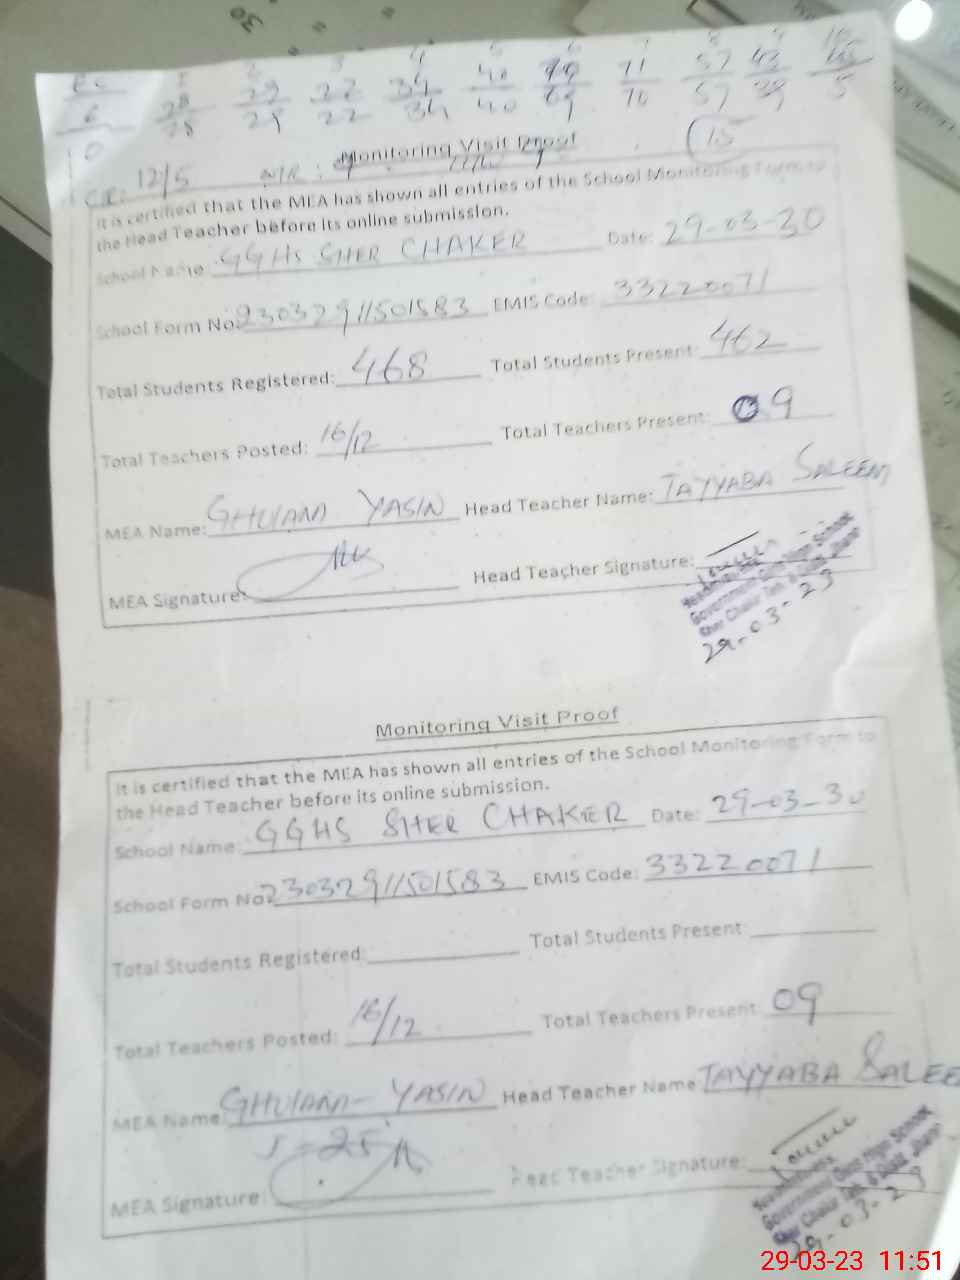 1 2 3 4 5 6 7 8 9 10
6 28 29 22 34 40 70 71 57 43
0 28 29 22 34 40 69 70 57 39 5
CR: 12/5 N/R: 15
Monitoring Visit Proof
It is certified that the MEA has shown all entries of the School Monitoring Form to
the Head Teacher before its online submission.
School Name GGHS SHER CHAKER Date: 29-03-30
School Form No 23032911501583 EMIS Code: 33220071
Total Students Registered: 468 Total Students Present: 462
Total Teachers Posted: 16/12 Total Teachers Present: 09
MEA Name: GHULAM YASIN Head Teacher Name: TAYYABA SALEEM
MEA Signature: Head Teacher Signature:
Headmistress
Government Girls High School
Sher Chakar Teh & Distt Jhang
29-03-23
Monitoring Visit Proof
It is certified that the MEA has shown all entries of the School Monitoring Form to
the Head Teacher before its online submission.
School Name: GGHS SHER CHAKER Date: 29-03-30
School Form No 23032911501583 EMIS Code: 33220071
Total Students Registered: Total Students Present:
Total Teachers Posted: 16/12 Total Teachers Present: 09
MEA Name: GHULAM YASIN Head Teacher Name TAYYABA SALEE
MEA Signature: Head Teacher Signature:
Headmistress
Government Girls High School
Sher Chakar Teh & Distt Jhang
29-03-23
29-03-23 11:51